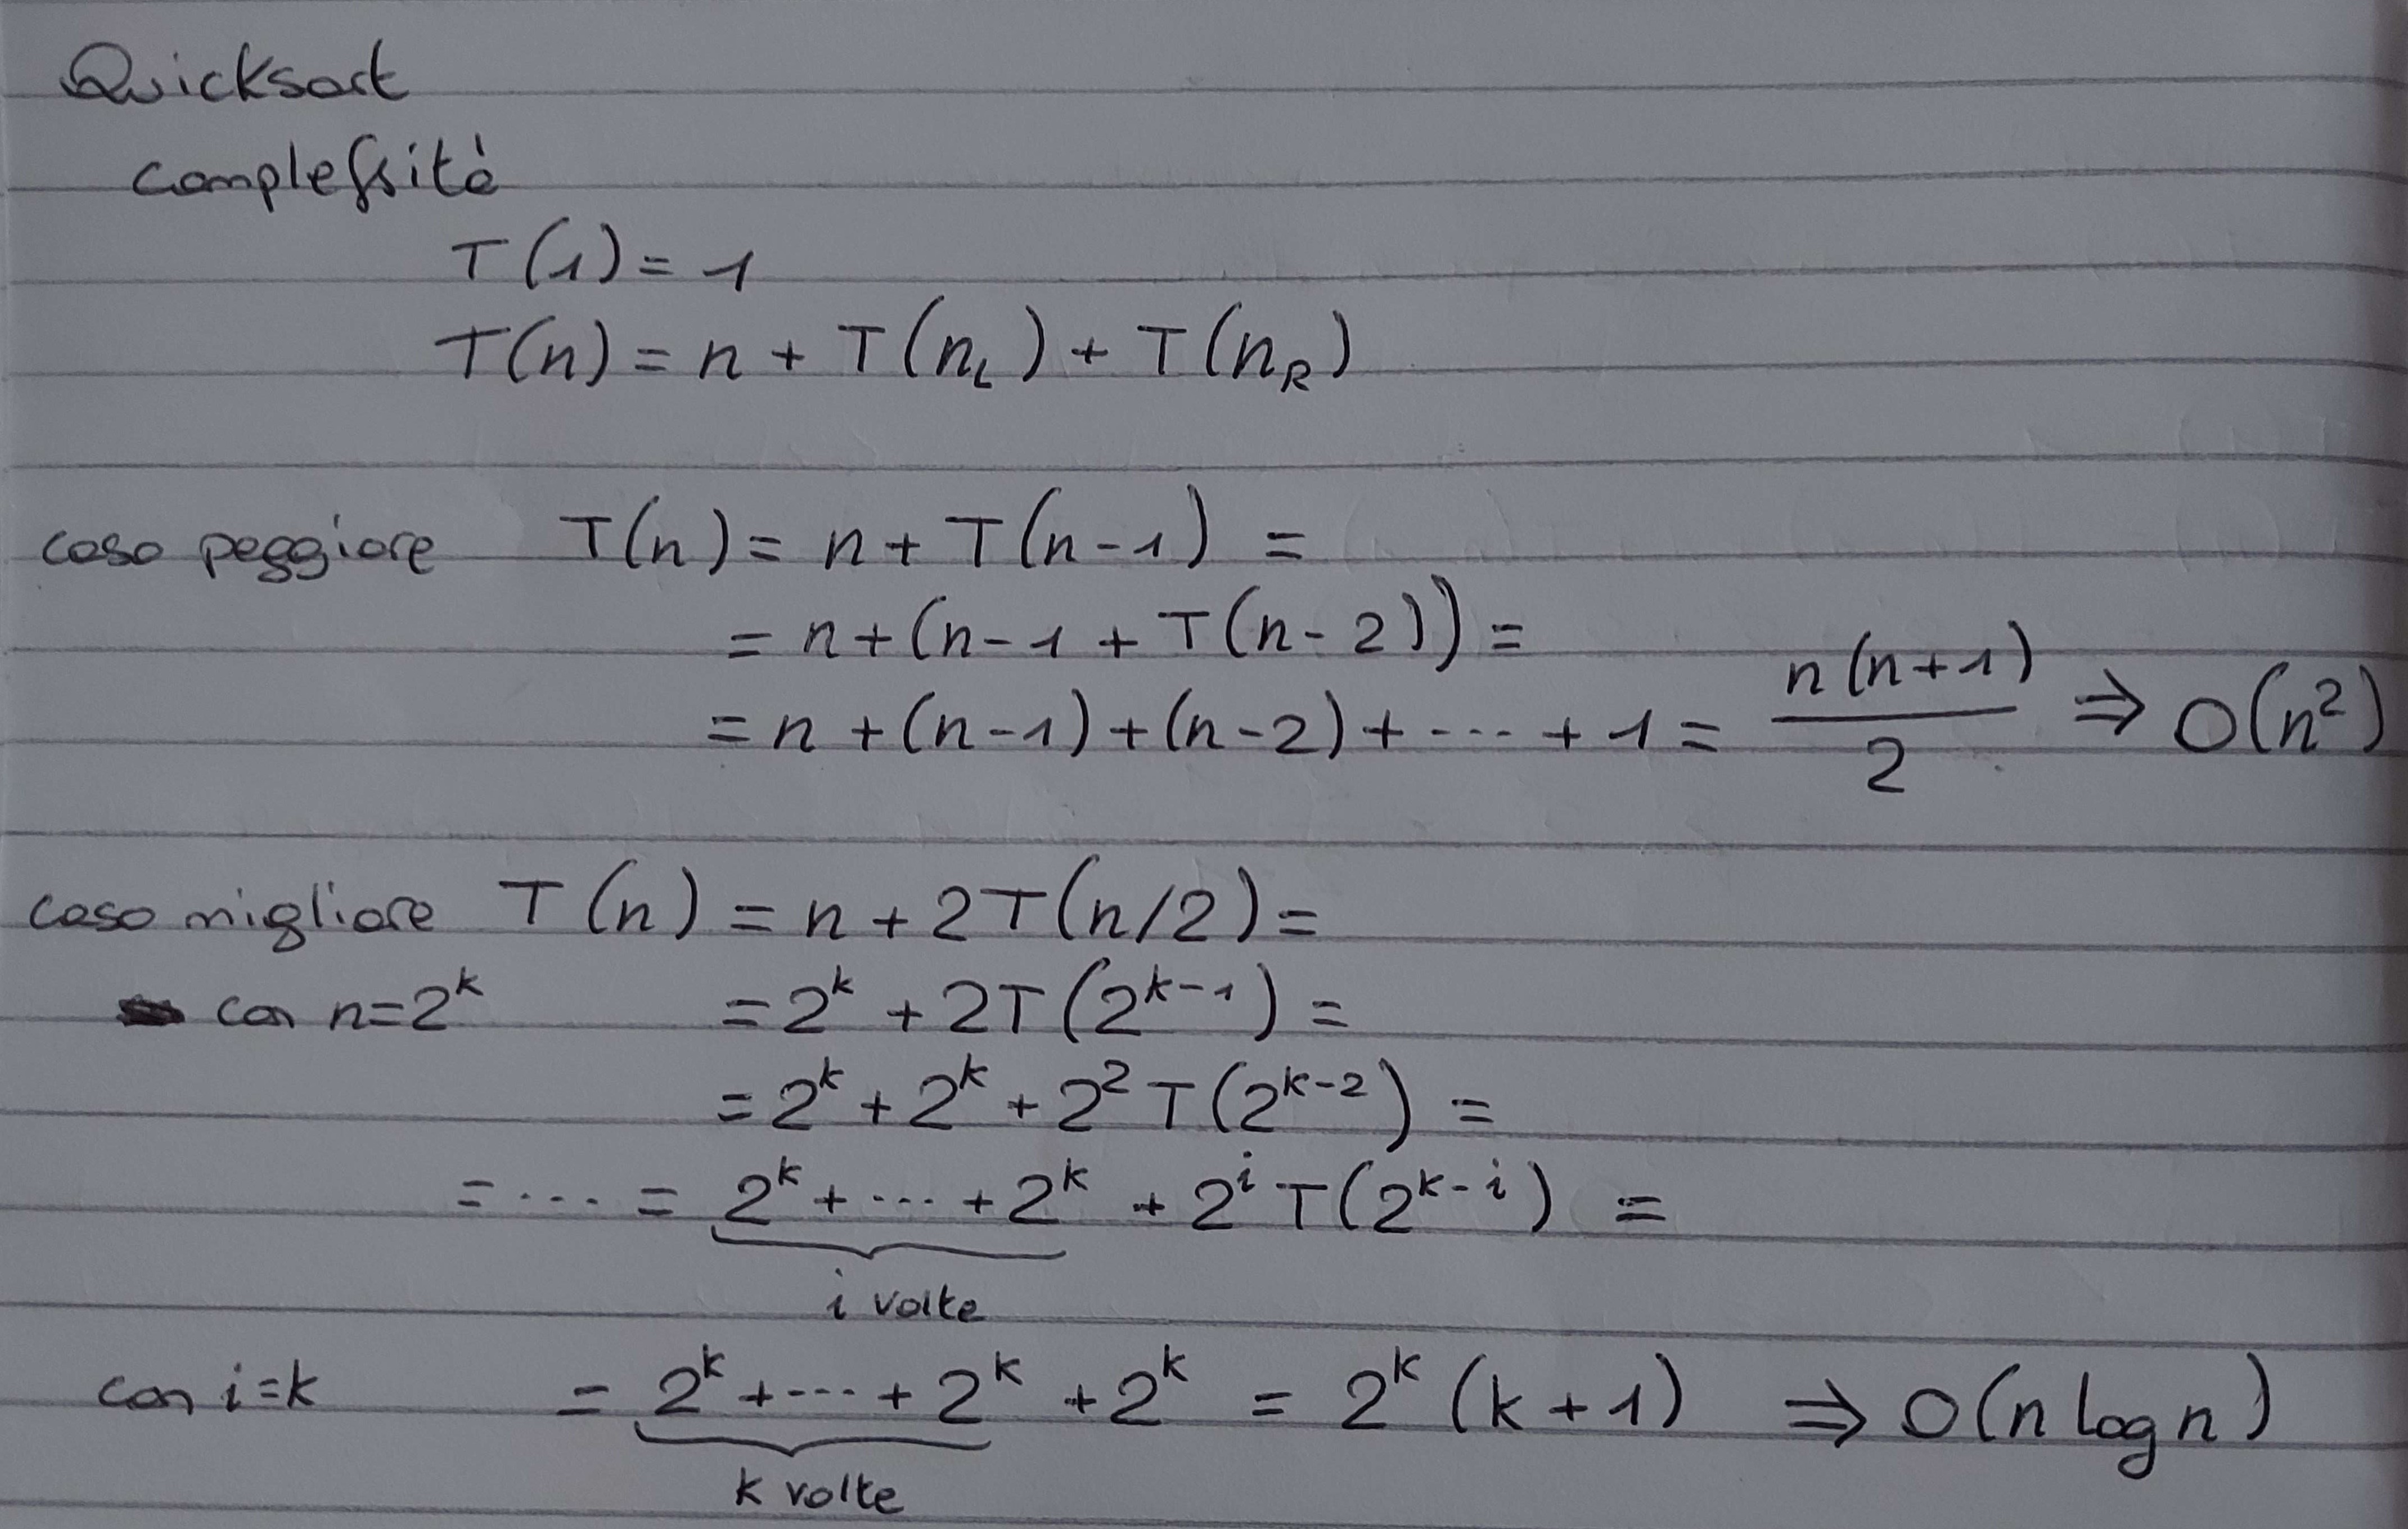 Quicksort
complessità
T(1) = 1
T(n) = n + T(n_L) + T(n_R)
caso peggiore T(n) = n + T(n-1) =
= n + (n-1 + T(n-2)) =
= n + (n-1) + (n-2) + ... + 1 = n(n+1)/2 ⇒ O(n²)
caso migliore T(n) = n + 2T(n/2) =
con n=2^k = 2^k + 2T(2^{k-1}) =
= 2^k + 2^k + 2² T(2^{k-2}) =
= ... = 2^k + ... + 2^k + 2^i T(2^{k-i}) =
i volte
con i=k = 2^k + ... + 2^k + 2^k = 2^k (k+1) ⇒ O(n log n)
k volte